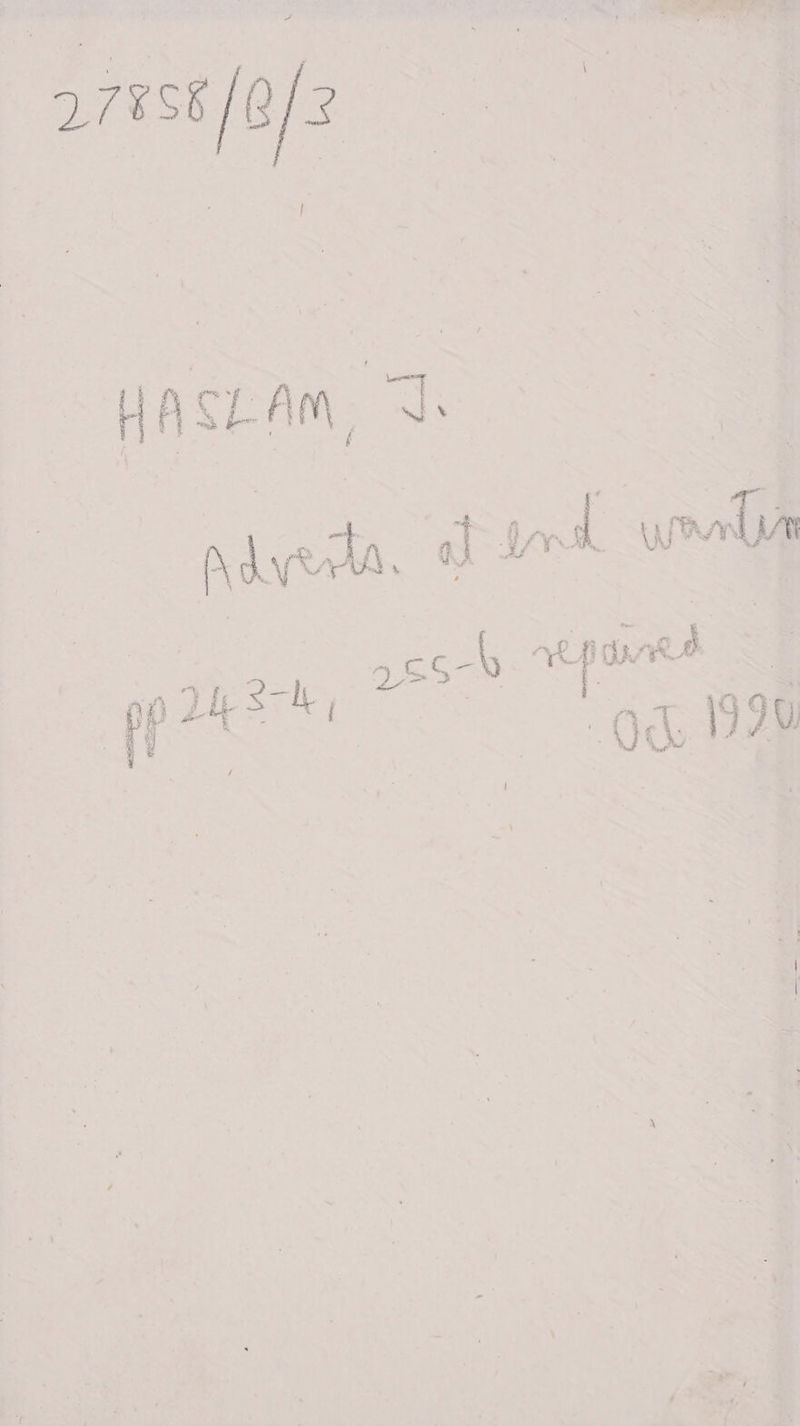 27858/B/3
HASLAM, J.
Adverts. at end wantin
pp 243-4, 255-6 repaired
Oct 1990